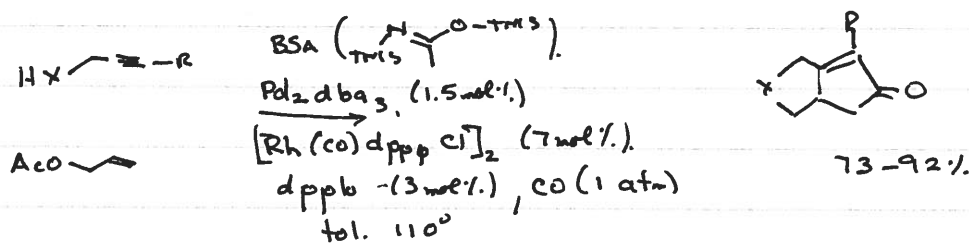 HX R
BSA ( TMS N O-TMS ).
Pd₂dba₃, (1.5 mol%)
[Rh(CO)dppp Cl]₂ (7 mol%).
dppb -(3 mol%), CO (1 atm)
tol. 110°
AcO
R
X O
73-92%